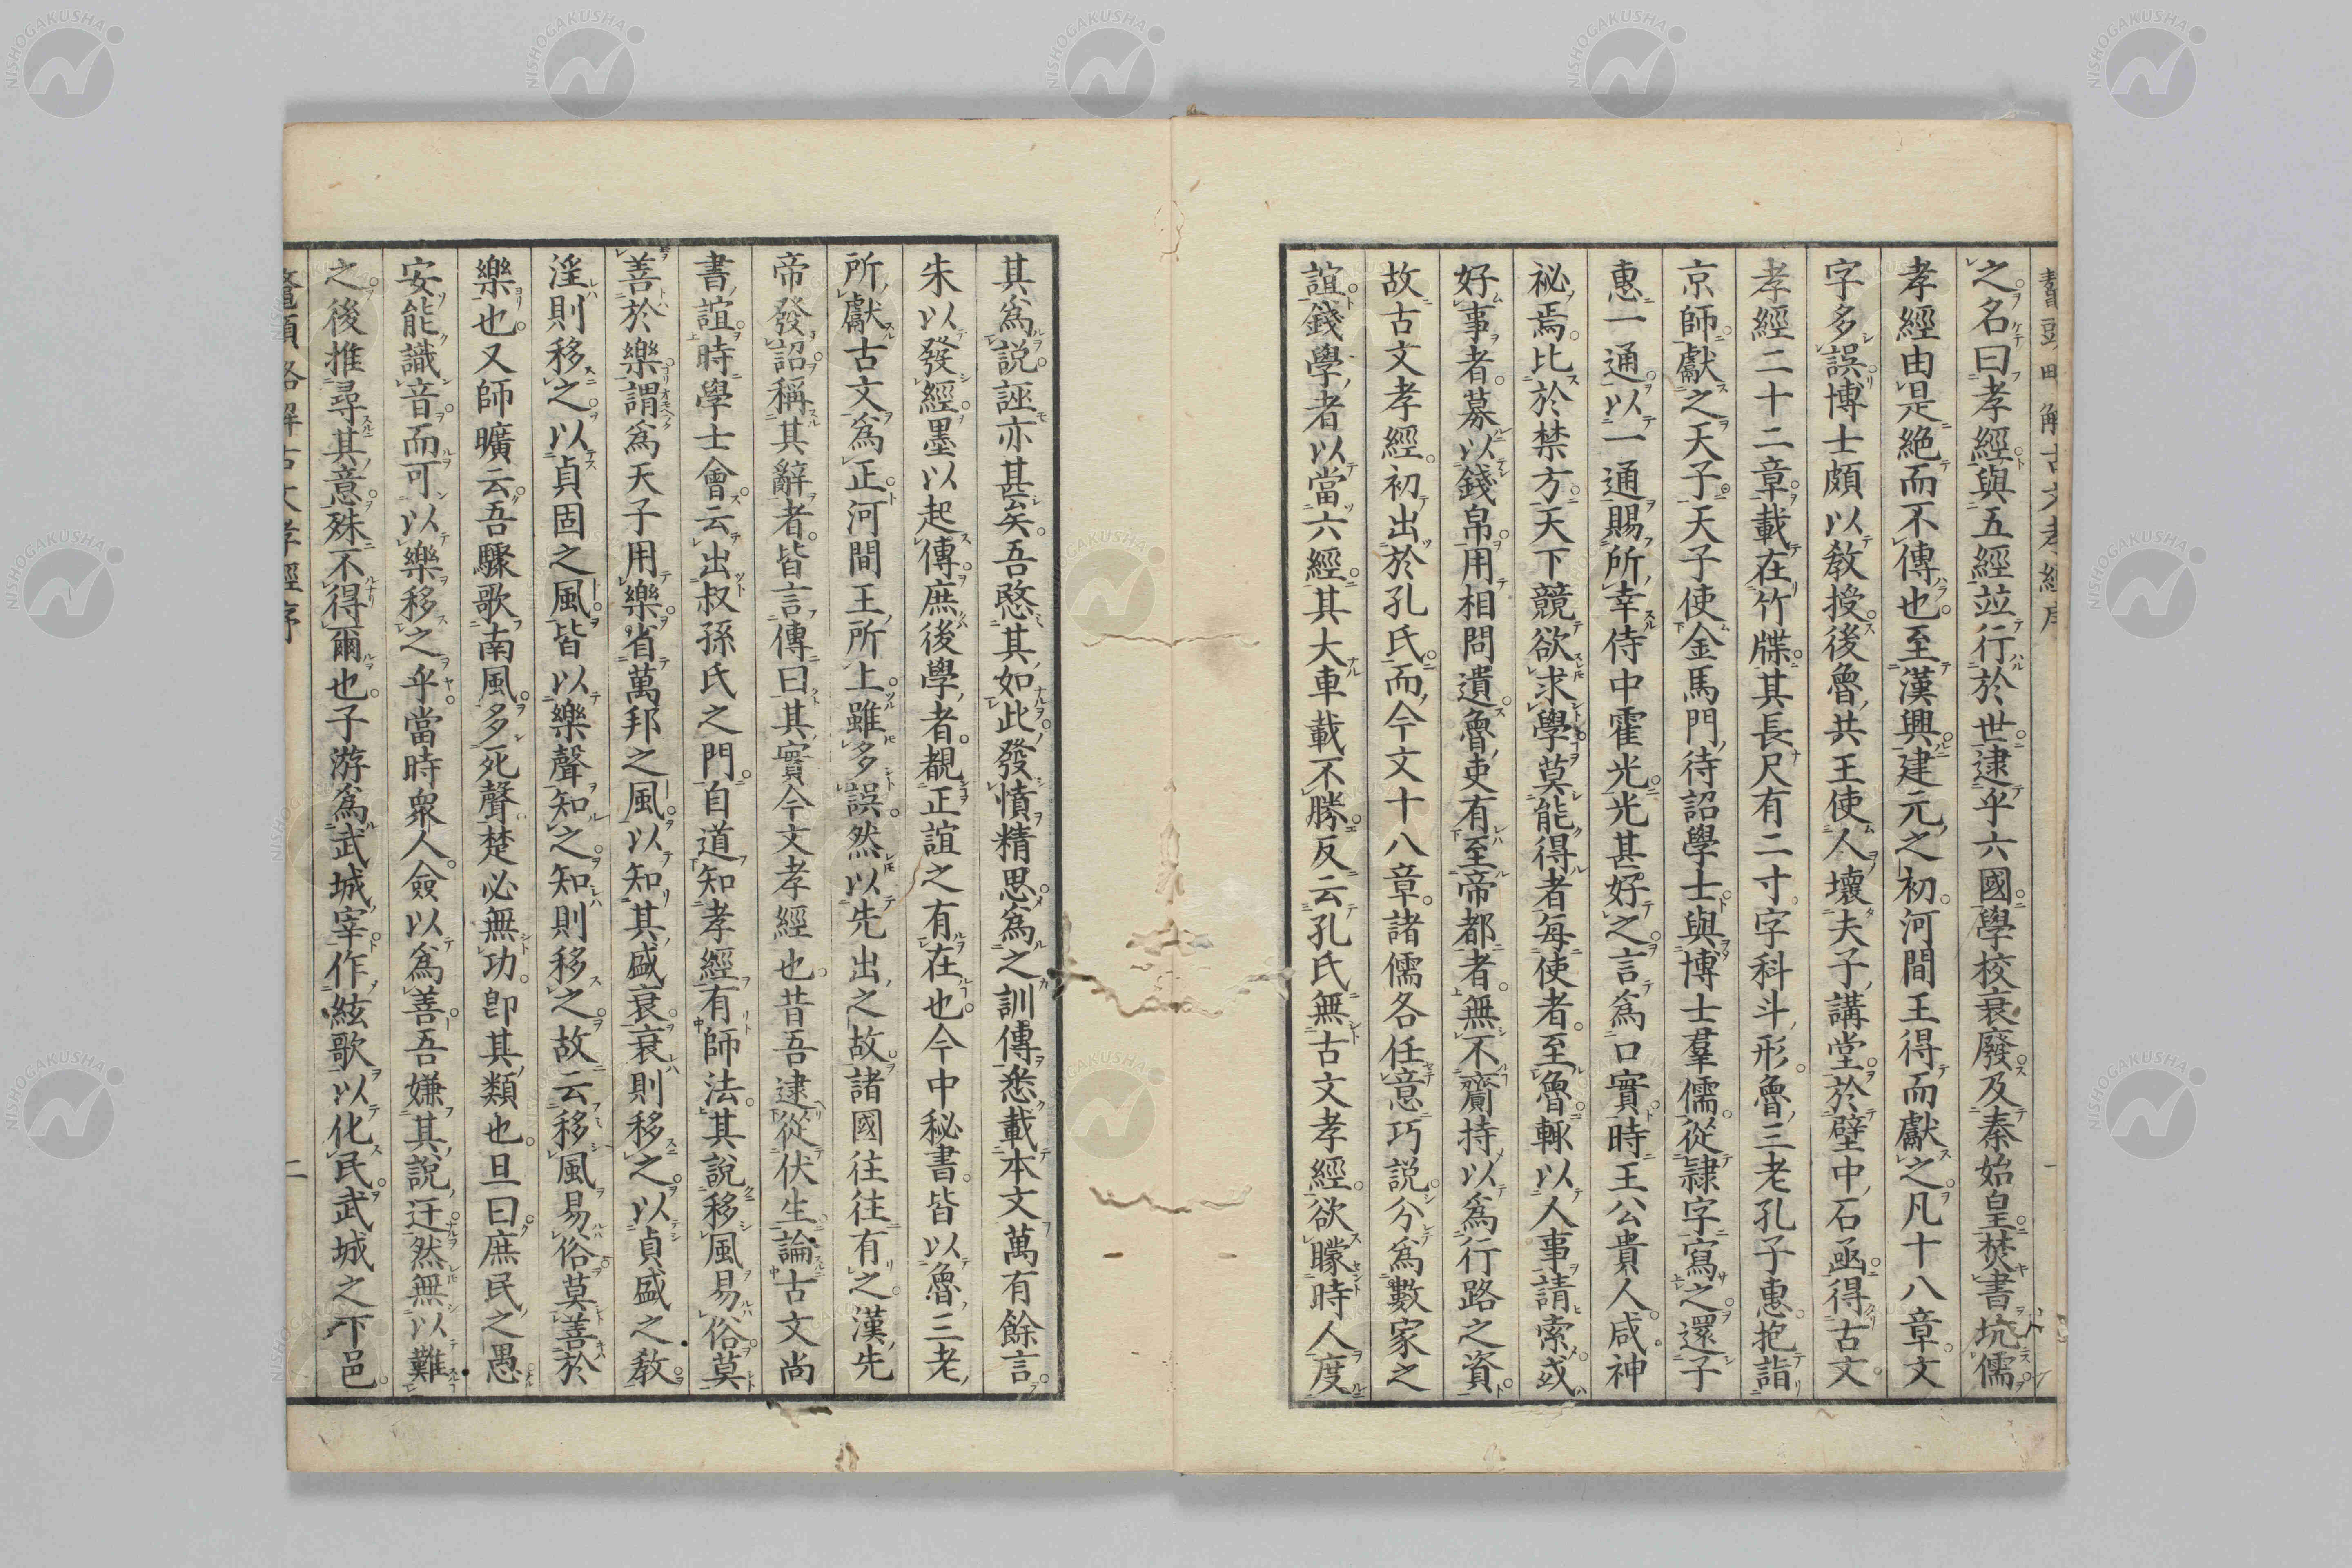 之名曰孝經與五經竝行於世逮乎六國學校衰廢及秦始皇焚書坑儒
孝經由是絕而不傳也至漢興建元之初河間王得而獻之凡十八章文
字多誤博士頗以敎授後魯共王使人壞夫子講堂於壁中石函得古文
孝經二十二章載在竹牒其長尺有二寸字科斗形魯三老孔子惠抱詣
京師獻之天子天子使金馬門待詔學士與博士羣儒從隸字寫之還子
惠一通以一通賜所幸侍中霍光光甚好之言爲口實時王公貴人咸神
祕焉比於禁方天下競欲求學莫能得者每使者至魯輒以人事請索或
好事者募以錢帛用相問遺魯吏有至帝都者無不齎持以爲行路之資
故古文孝經初出於孔氏而今文十八章諸儒各任意巧說分爲數家之
誼錢學者以當六經其大車載不勝反云孔氏無古文孝經欲矇時人度
其爲說誣亦甚矣吾愍其如此發憤精思爲之訓傳悉載本文萬有餘言
朱以發經墨以起傳庶後學者覩正誼之有在也今中秘書皆以魯三老
所獻古文爲正河間王所上雖多誤然以先出之故諸國往往有之漢先
帝發詔稱其辭者皆言傳曰其實今文孝經也昔吾逮從伏生論古文尙
書誼時學士會云出叔孫氏之門自道知孝經有師法其說移風易俗莫
善於樂謂爲天子用樂省萬邦之風以知其盛衰衰則移之以貞盛之敎
淫則移之以貞固之風皆以樂聲知之知則移之故云移風易俗莫善於
樂也又師曠云吾驟歌南風多死聲楚必無功卽其類也且曰庶民之愚
安能識音而可以樂移之乎當時衆人僉以爲善吾嫌其說迂然無以難
之後推尋其意殊不得爾也子游爲武城宰作絃歌以化民武城之下邑
二
NISHOGAKUSHA